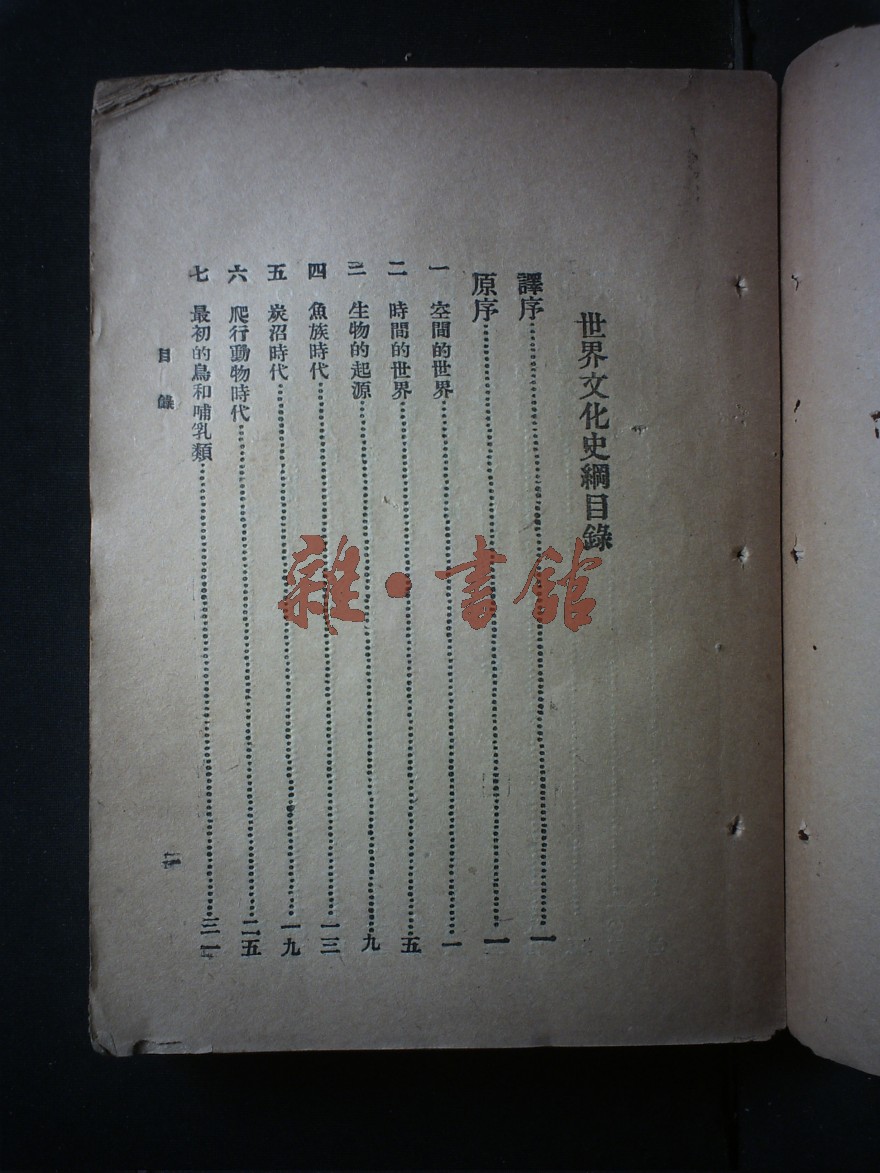 世界文化史綱目錄
譯序……一
原序……一
一 空間的世界……一
二 時間的世界……五
三 生物的起源……九
四 魚族時代……一三
五 炭沼時代……一九
六 爬行動物時代……二五
七 最初的鳥和哺乳類……三一
目錄
雜·書館